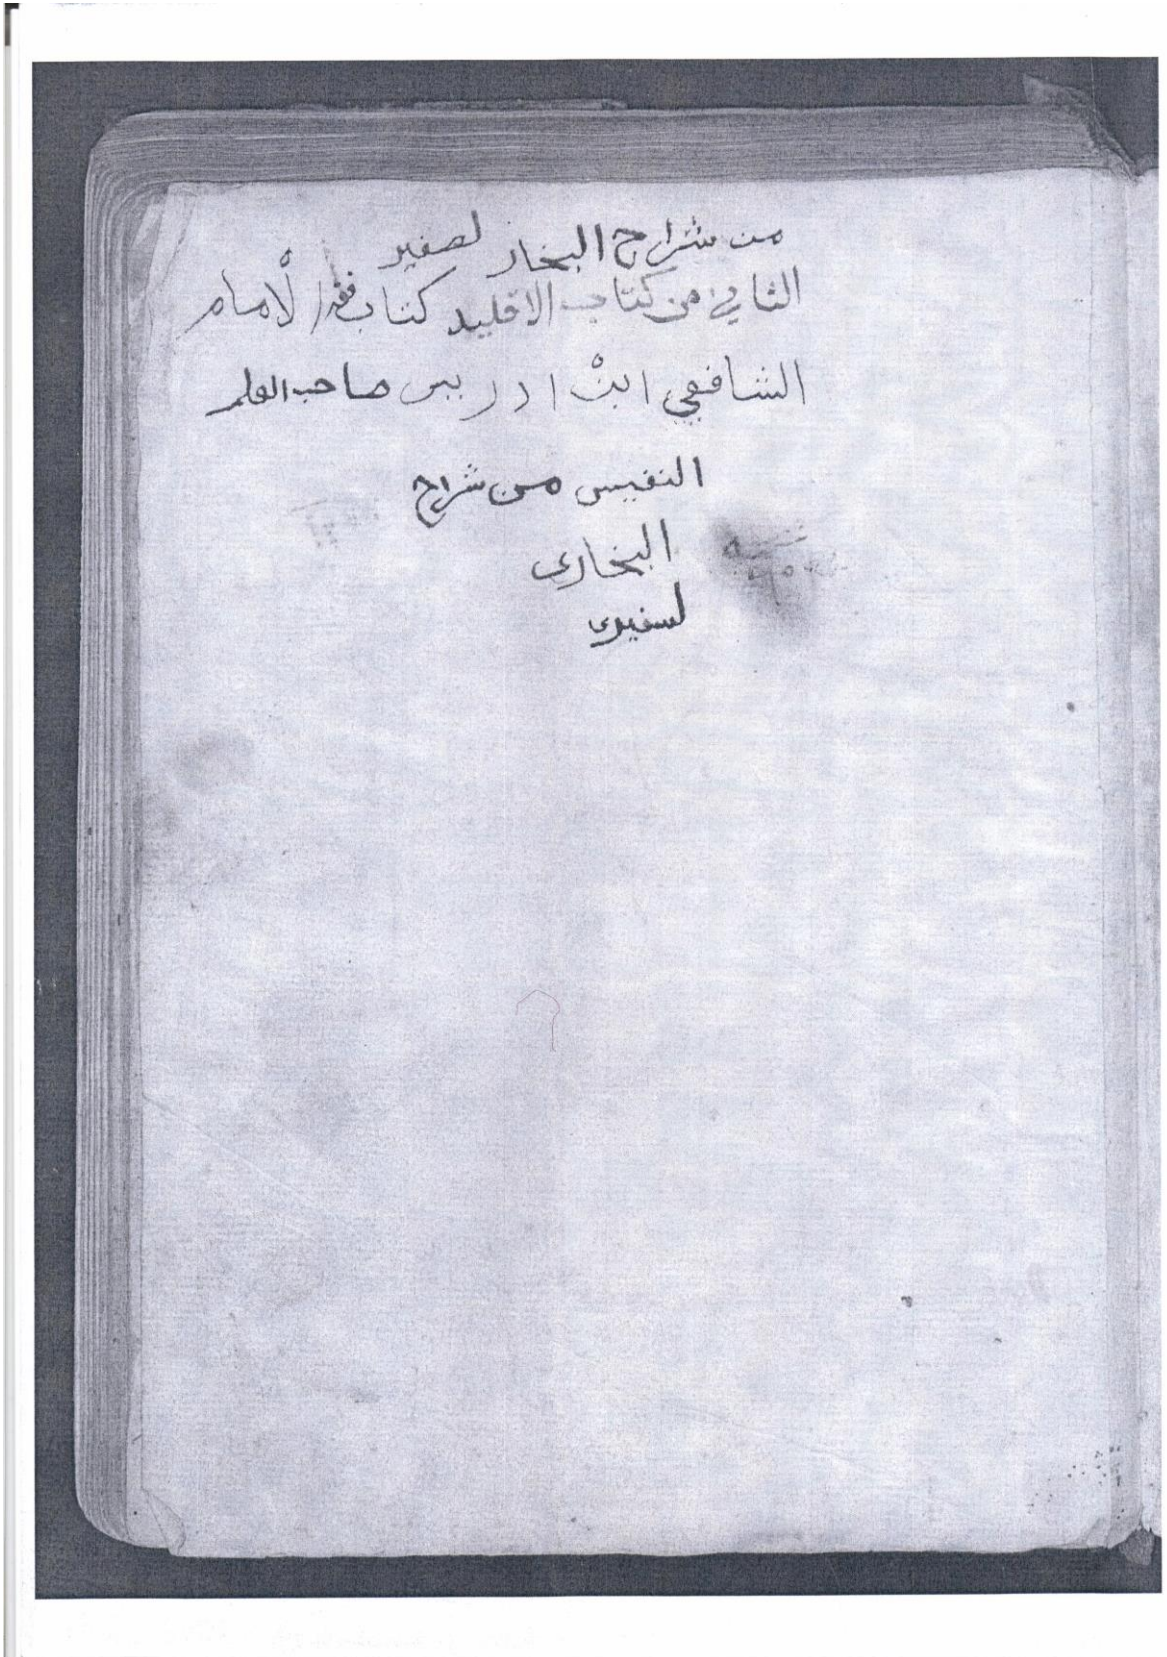 من شراح البخار لصفير
الثاني من كتاب الاقليد كتاب فقه الامام
الشافعي ابنْ ادريس صاحب العلم
النفيس من شراح
البخارى
لسفيرى